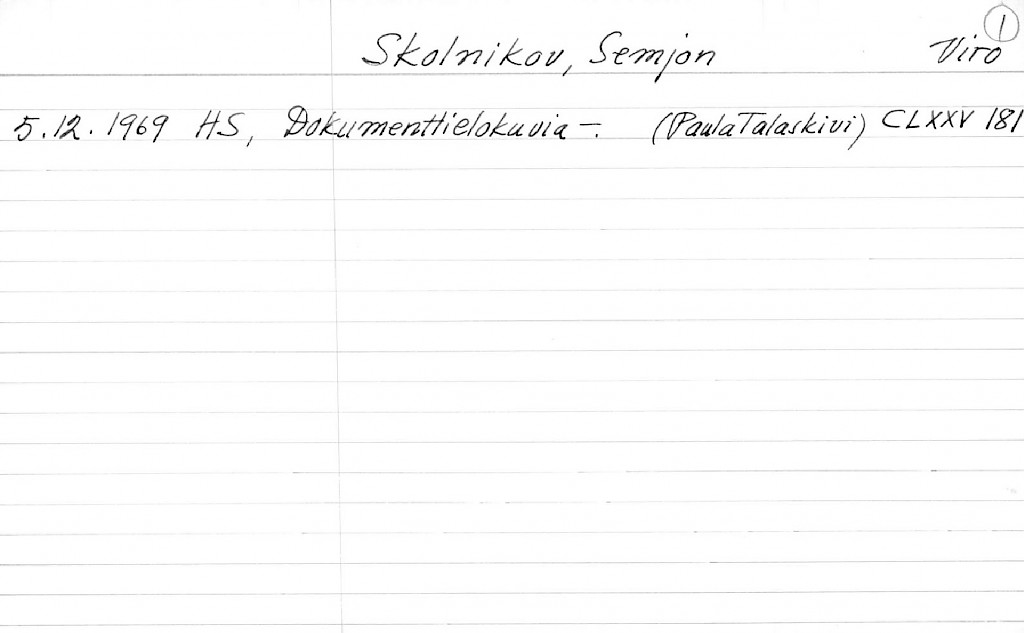 Skolnikov, Semjon Viro 1
5.12.1969 HS, Dokumenttielokuvia -. (Paula Talaskivi) CLXXV 181